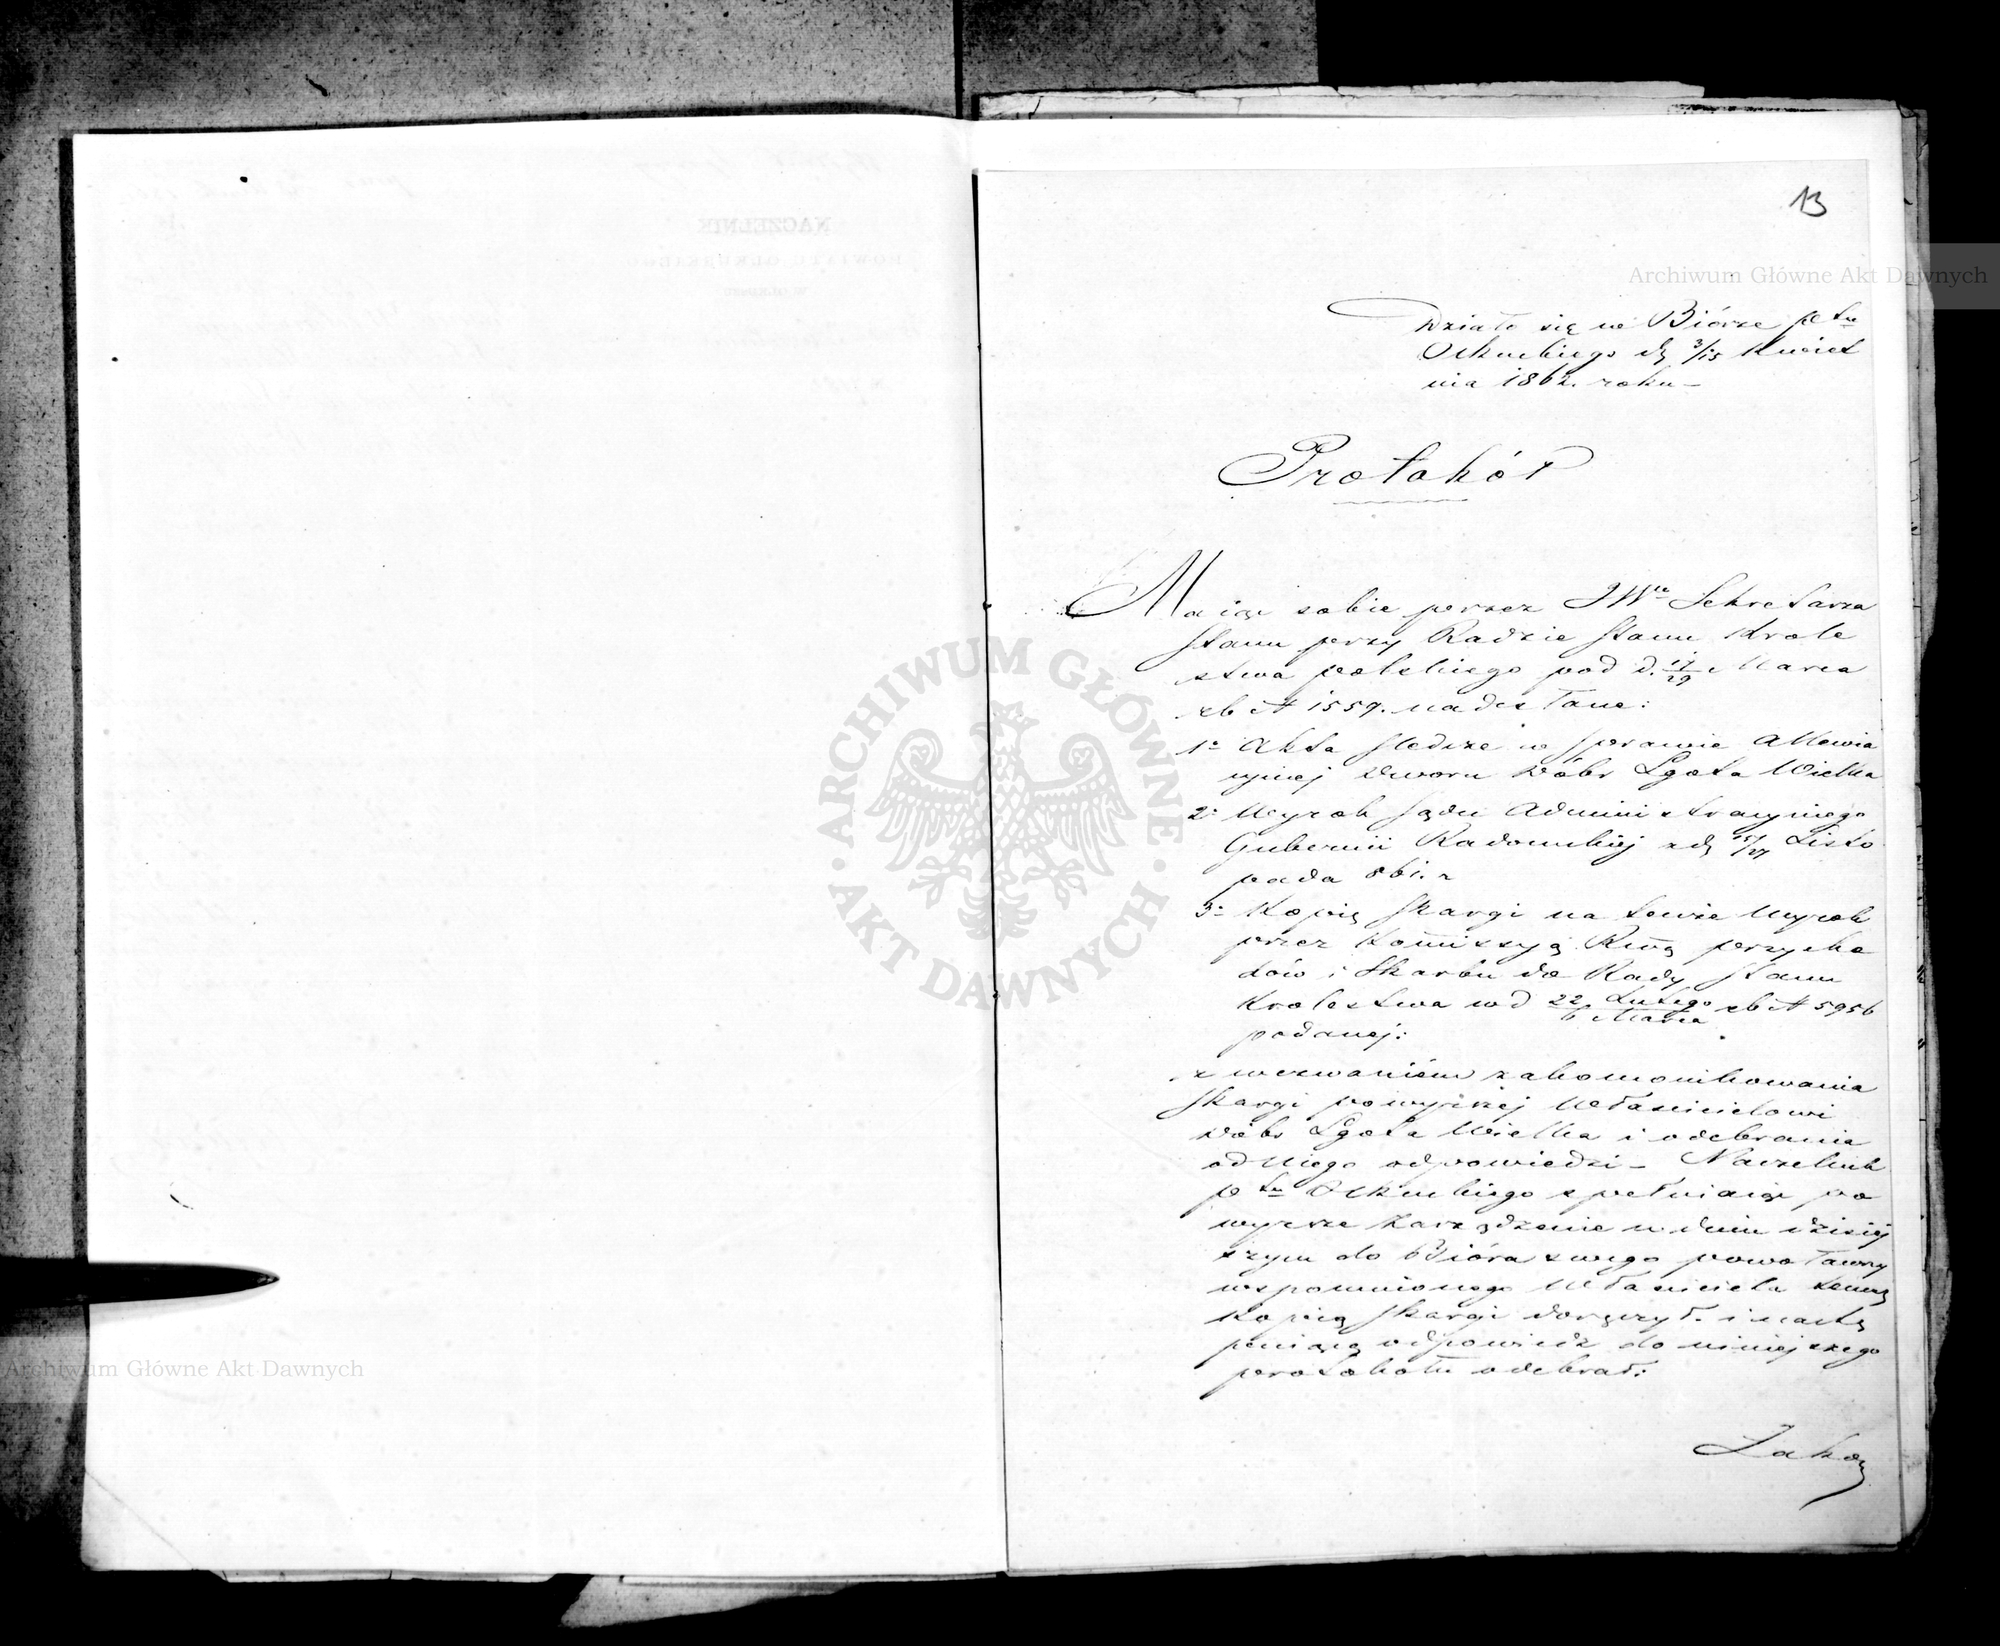 13
Działo się w Biórze Ptu
Olkuskiego dn 3/15 Kwiet
nia 1862. roku –
Protokół
Maiąc sobie przez JWgo Sekretarza
Stanu przy Radzie Stanu Króle
stwa polskiego pod d. 17/29 Marca
rb N 1559. nadesłane:
1o Akta śledcze w sprawie
dworu dóbr Lgota Wielka
2o Wyrok Sądu Administracyjnego
Gubernii Radomskiej z dn 15/27 Listo
pada 861. r
3o Kopię Skargi na tenże Wyrok
przez Kommissyą Rwą przycho
dów i Skarbu do Rady Stanu
Królestwa w d 22 Lutego/6 Marca rb N 5956
podanej:
z wezwaniem zakomonikowania
Skargi powyższej Właścicielowi
dóbr Lgota Wielka i odebrania
od niego odpowiedzi – Naczelnik
Ptu Olkuskiego spełniaiąc po
wyższe Zarządzenie w dniu dzisiej
szym do Bióra swego powoławszy
wspomnionego Właściciela temuż
kopią Skargi doręczył. i nastę
puiącą odpowiedź do niniejszego
protokołu odebrał:
NACZELNIK
POWIATU OLKUSKIEGO
ARCHIWUM GŁÓWNE
AKT DAWNYCH
Archiwum Główne Akt Dawnych
Archiwum Główne Akt Dawnych